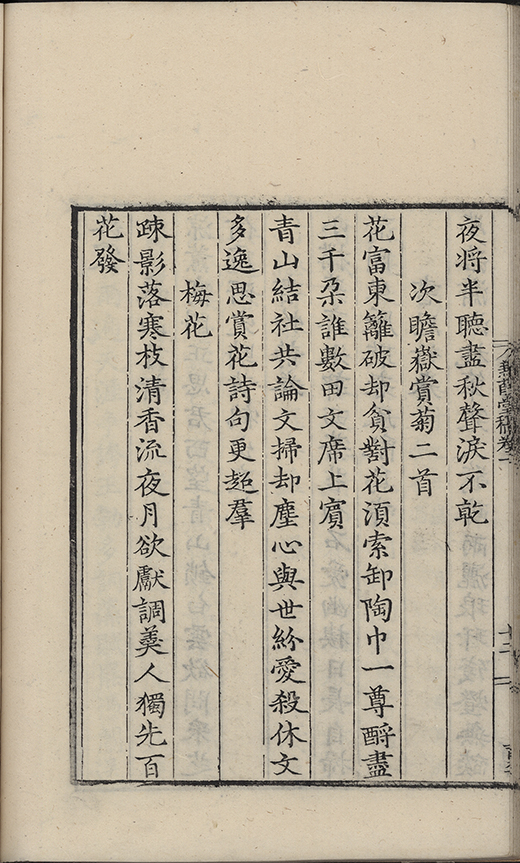 夜將半聽盡秋聲淚不乾
次瞻嶽賞菊二首
花富東籬破却貧對花湏索卸陶巾一尊酹盡
三千朶誰數田文席上賓
青山結社共論文掃却塵心與世紛愛殺休文
多逸思賞花詩句更超羣
梅花
踈影落寒枝清香流夜月欲獻調羹人獨先百
花發